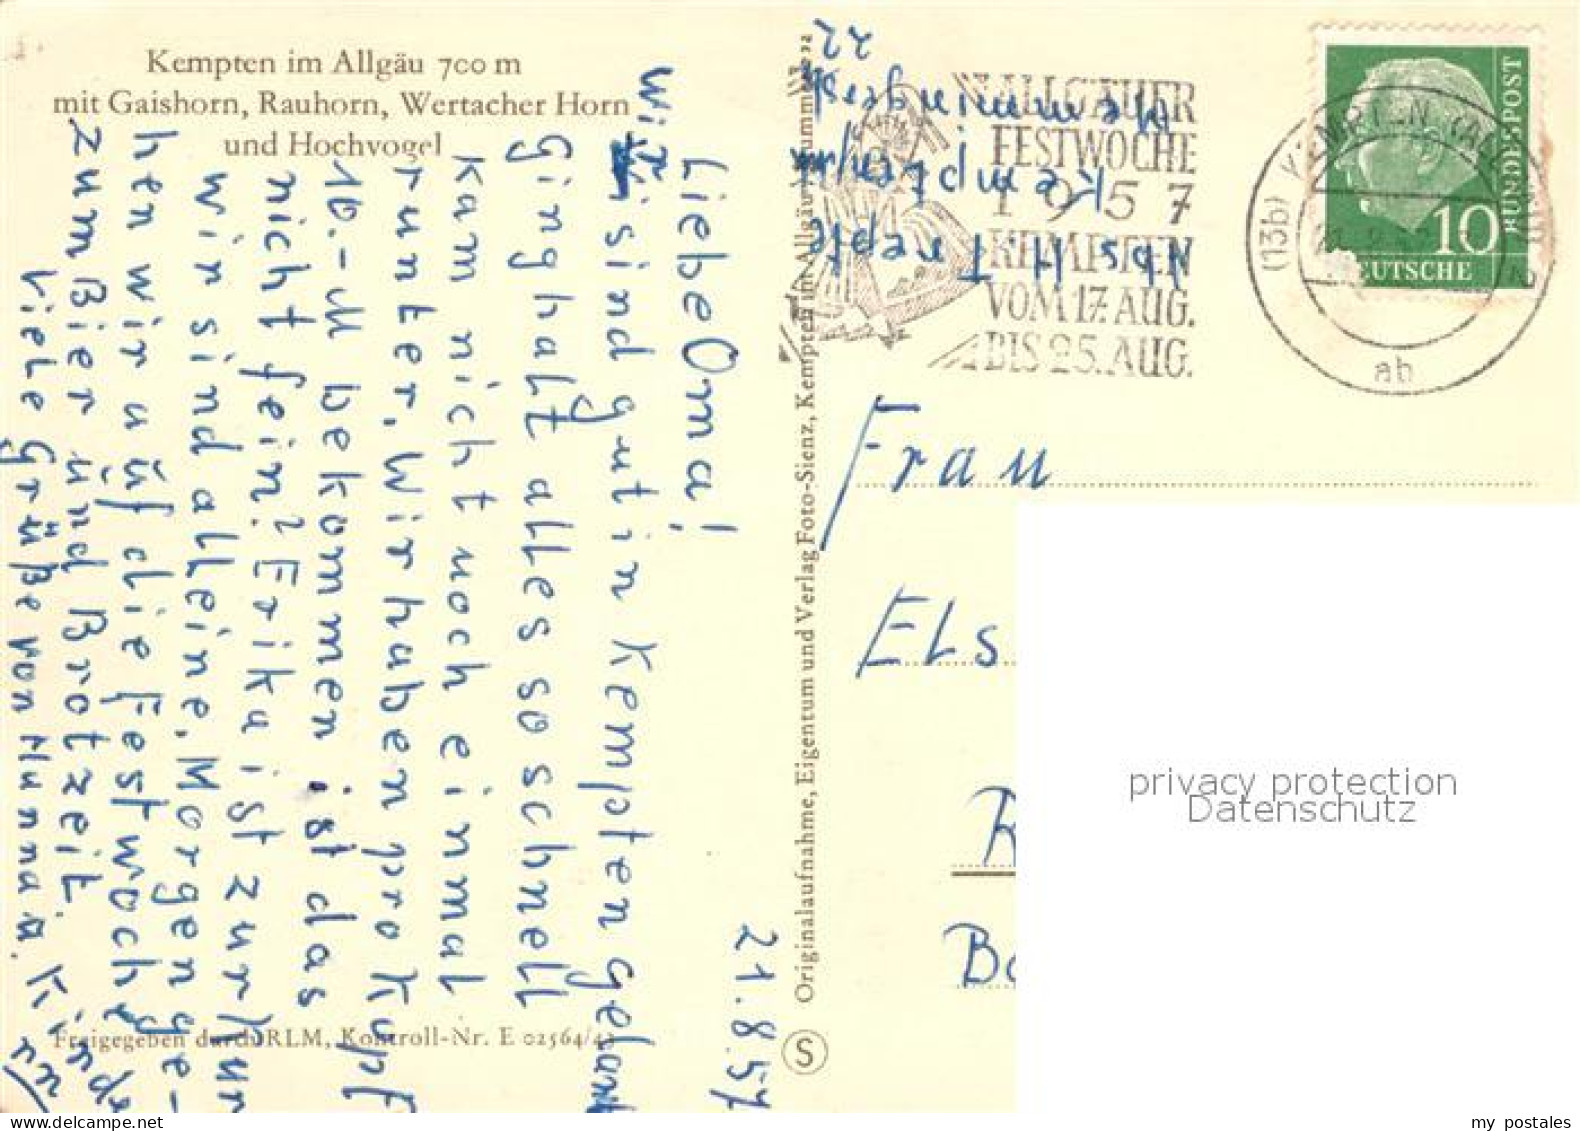 Kempten im Allgäu 700 m
mit Gaishorn, Rauhorn, Wertacher Horn
und Hochvogel
21.8.57
Liebe Oma!
Wir sind gut in Kempten gelandet
Ging halt alles so schnell
kam nicht noch einmal
runter. Wir haben pro Kopf
10.-M bekommen ist das
nicht fein? Erika ist zur Kur
wir sind alleine. Morgen ge-
hen wir auf die Festwoche
zum Bier und Brotzeit.
Viele Grüße von Hanna
Freigegeben durch RLM, Kontroll-Nr. E 02564/42
Originalaufnahme, Eigentum und Verlag Foto-Sienz, Kempten im Allgäu
S
Abs. H.
Kempten
22
ALLGÄUER
FESTWOCHE
1957
KEMPTEN
VOM 17. AUG.
BIS 25. AUG.
(13b) KEMPTEN
ab
DEUTSCHE
BUNDESPOST
10
Frau
Els
R
Ba
privacy protection
Datenschutz
my postales